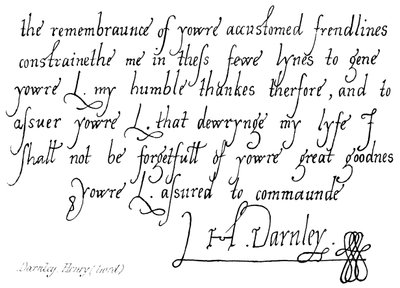 the remembraunce of yowre accustomed frendlines
constrainethe me in thess fewe lynes to geue
yowre L. my humble thankes therfore, and to
assuer yowre L. that dewrynge my lyfe I
shall not be forgetfull of yowre great goodnes
yowre L. assured to commaunde
H. Darnley.
Darnley, Henry (Lord)